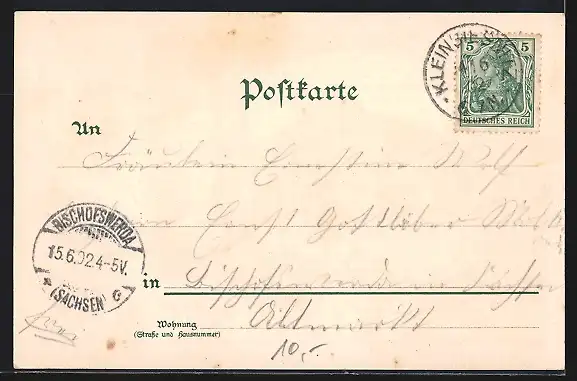 5 5
DEUTSCHES REICH
Postkarte
An
Fräulein Ernstine Wolf
Ernst Gotthelf
BISCHOFSWERDA
15.6.02.4-5V.
(SACHSEN) c
in Bischofswerda in Sachsen
Altmarkt
Wohnung
(Straße und Hausnummer)
frei
10,-